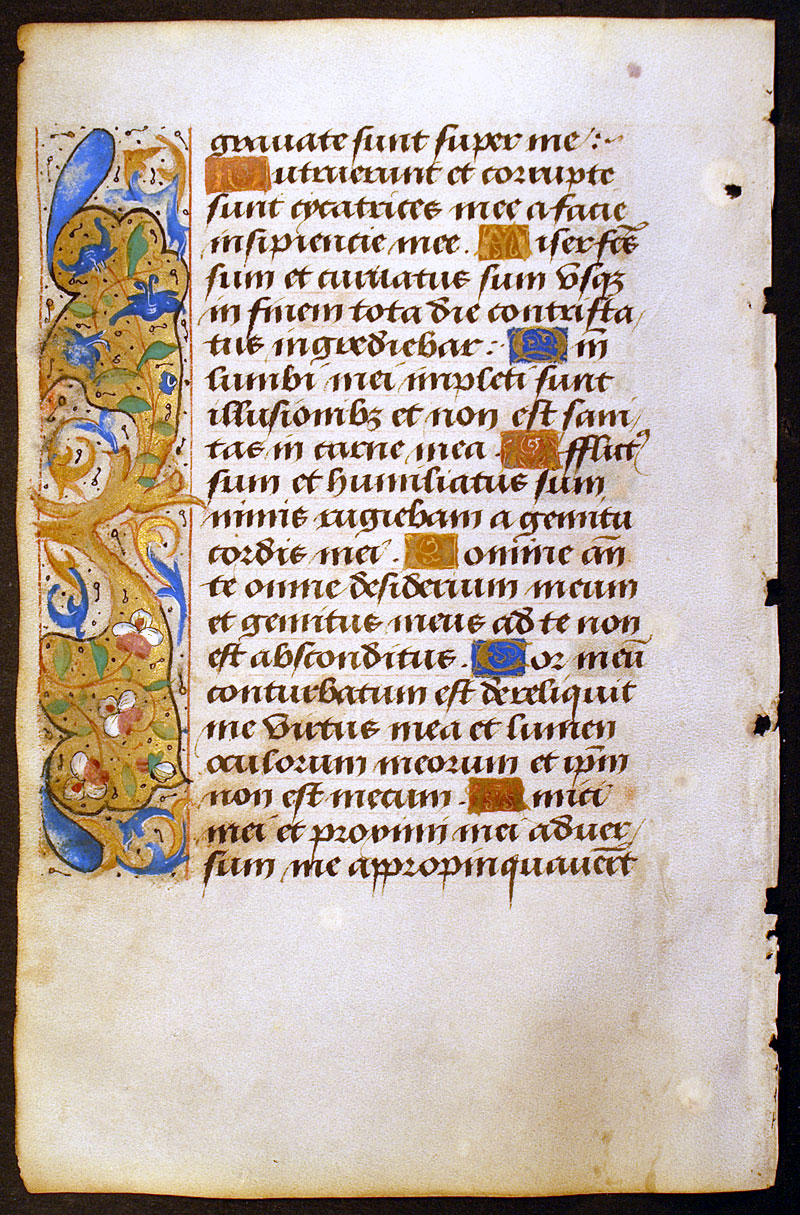 grauate sunt super me :~
Putruerunt et corrupte
sunt cycatrices mee a facie
insipiencie mee . Miser fc̄s
sum et curuatus sum vsqꝫ
in finem tota die contrista/
tus ingrediebar : Qm̄
lumbi mei impleti sunt
illusionibꝫ et non est sani/
tas in carne mea . Afflictꝰ
sum et humiliatus sum
nimis rugiebam a gemitu
cordis mei . Domine an̄
te omne desiderium meum
et gemitus meus ad te non
est absconditus . Cor meū
conturbatum est dereliquit
me virtus mea et lumen
oculorum meorum et ip̄m
non est mecum . Amici
mei et proximi mei aduer/
sum me appropinquauer̄t